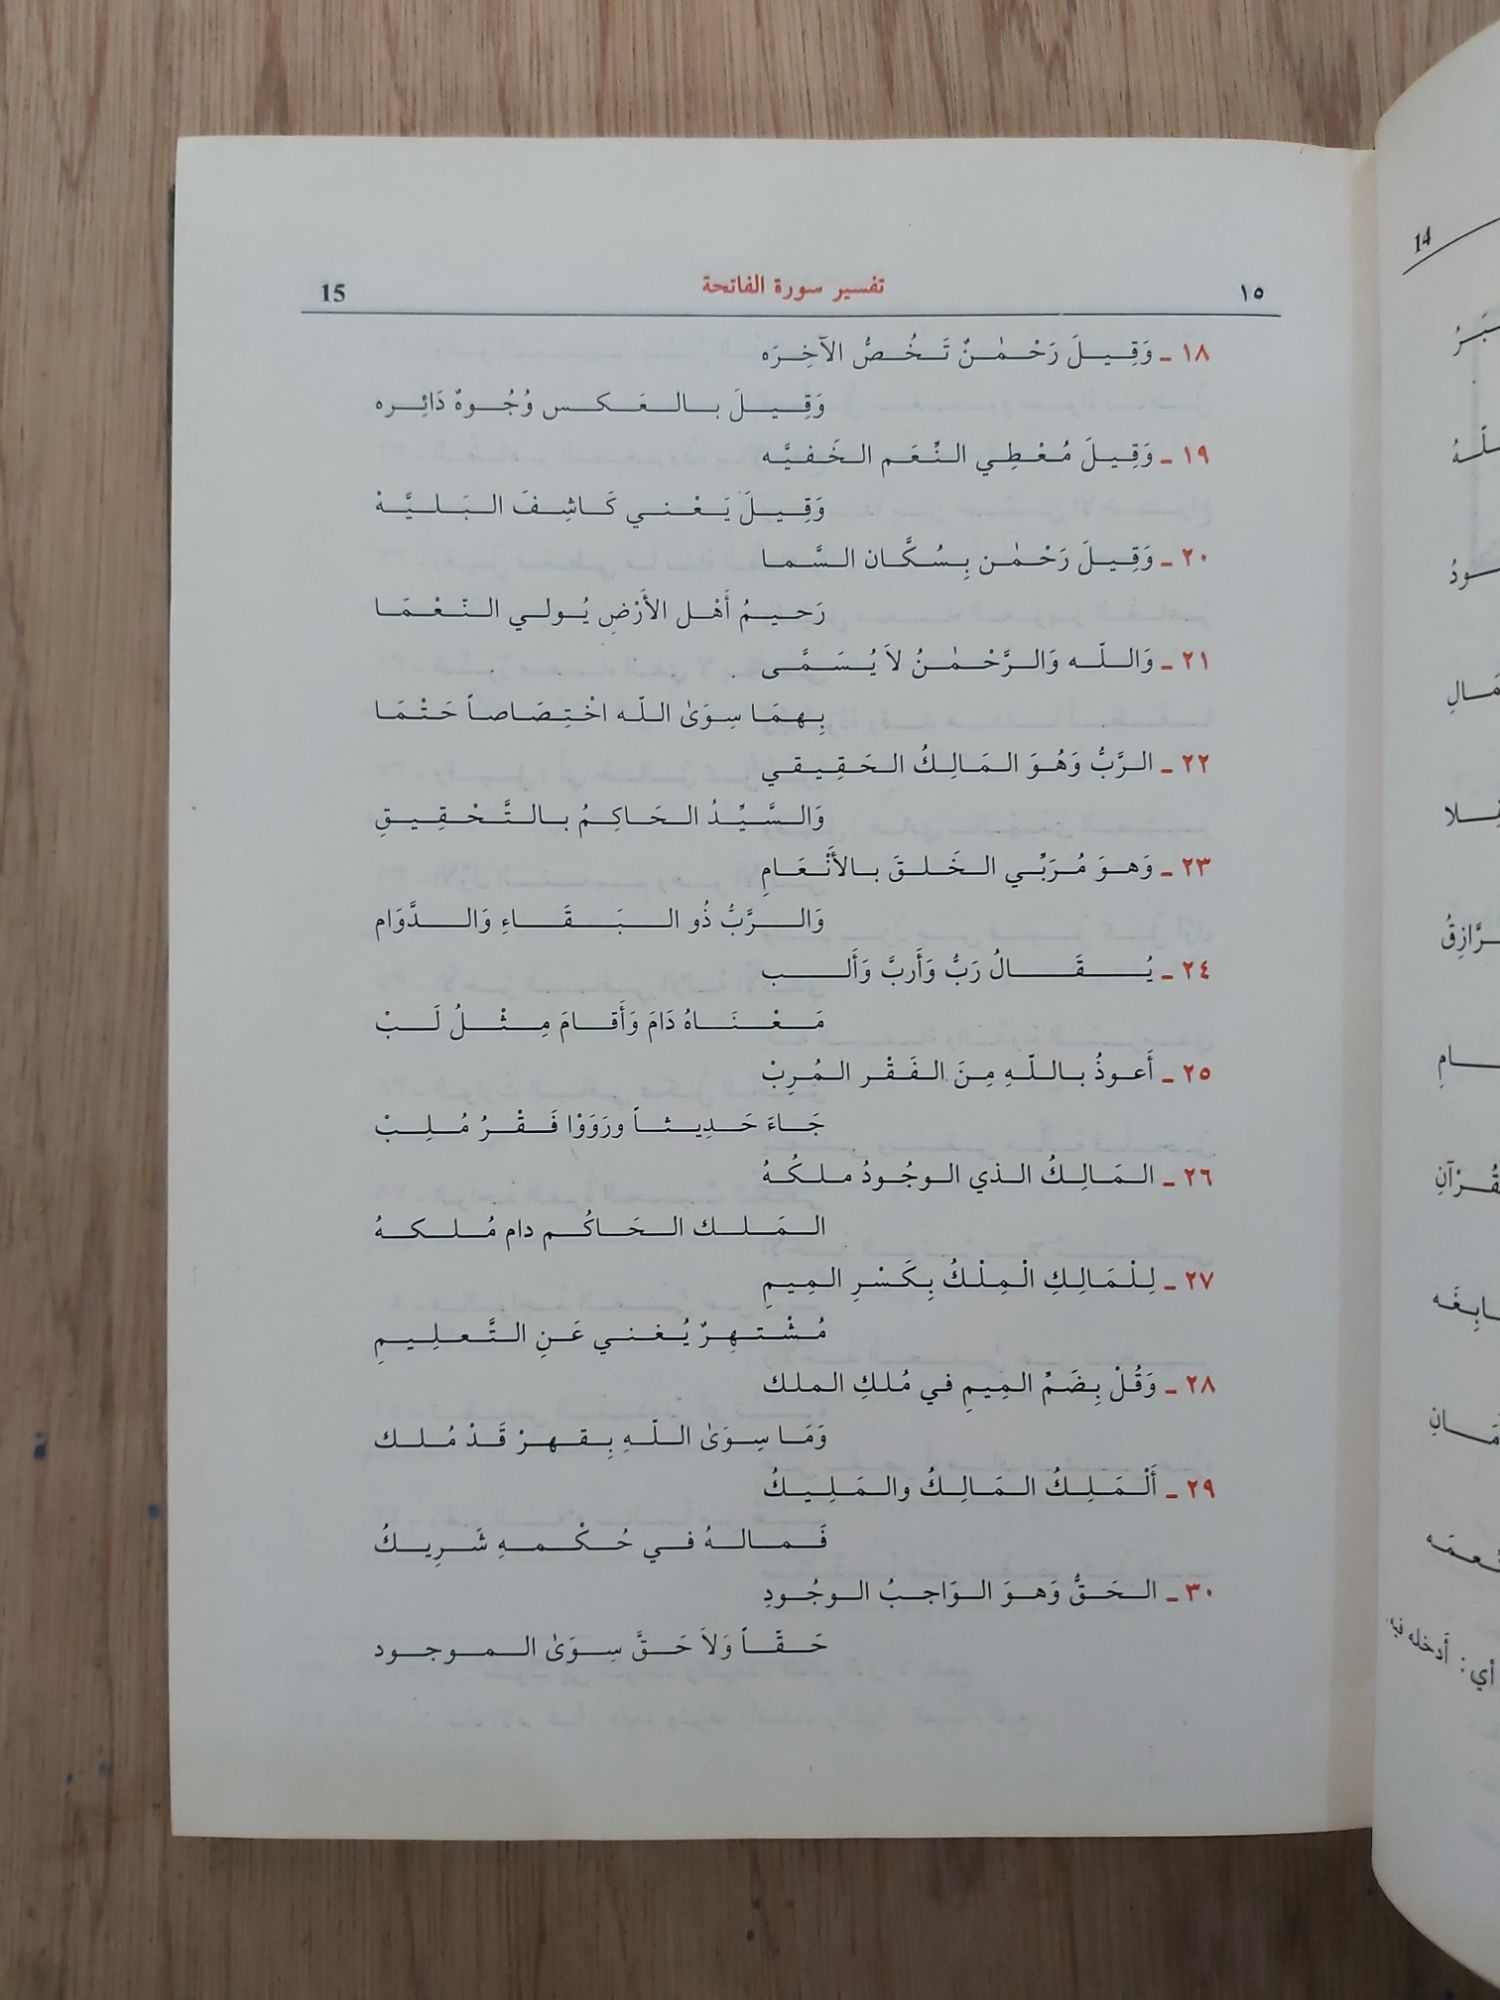 ١٥ تفسير سورة الفاتحة 15
١٨ ـ وَقِيلَ رَحْمٰنٌ تَخُصُّ الآخِرَه
وَقِيلَ بالعَكس وُجُوهٌ دَائِره
١٩ ـ وَقِيلَ مُعْطِي النِّعَم الخَفيَّه
وَقِيلَ يَعْني كَاشِفَ البَليَّهْ
٢٠ ـ وَقِيلَ رَحْمٰن بِسُكَّان السَّما
رَحيمُ أَهْل الأَرْضِ يُولي النّعْمَا
٢١ ـ وَاللّه وَالرَّحْمٰنُ لاَ يُسَمَّى
بِهمَا سِوَىٰ اللّه اخْتِصَاصاً حَتْمَا
٢٢ ـ الرَّبُّ وَهُوَ المَالِكُ الحَقِيقي
وَالسَّيِّدُ الحَاكِمُ بالتَّحْقِيقِ
٢٣ ـ وَهوَ مُرَبِّي الخَلقَ بالأَنْعَامِ
وَالرَّبُّ ذُو البَقَاءِ وَالدَّوَام
٢٤ ـ يُقَالُ رَبُّ وَأَربَّ وَأَلب
مَعْنَاهُ دَامَ وَأَقَامَ مِثْلُ لَبْ
٢٥ ـ أَعوذُ باللّهِ مِنَ الفَقْر المُرِبْ
جَاءَ حَدِيثاً ورَوَوْا فَقْرُ مُلِبْ
٢٦ ـ المَالِكُ الذي الوجُودُ ملكُهُ
المَلك الحَاكُم دام مُلكهُ
٢٧ ـ لِلْمَالِكِ الْمِلْكُ بِكَسْرِ المِيمِ
مُشْتهِرٌ يُغني عَنِ التَّعلِيمِ
٢٨ ـ وَقُلْ بِضَمِّ المِيمِ في مُلكِ الملك
وَمَا سِوَىٰ اللّهِ بِقهرْ قَدْ مُلك
٢٩ ـ أَلْمَلِكُ المَالِكُ والمَلِيكُ
فَمالهُ في حُكْمهِ شَرِيكُ
٣٠ ـ الحَقُّ وَهوَ الوَاجبُ الوجُودِ
حَقّاً وَلاَ حَقَّ سِوَىٰ الموجود
14
الرَّازِقُ
أي: أدخله